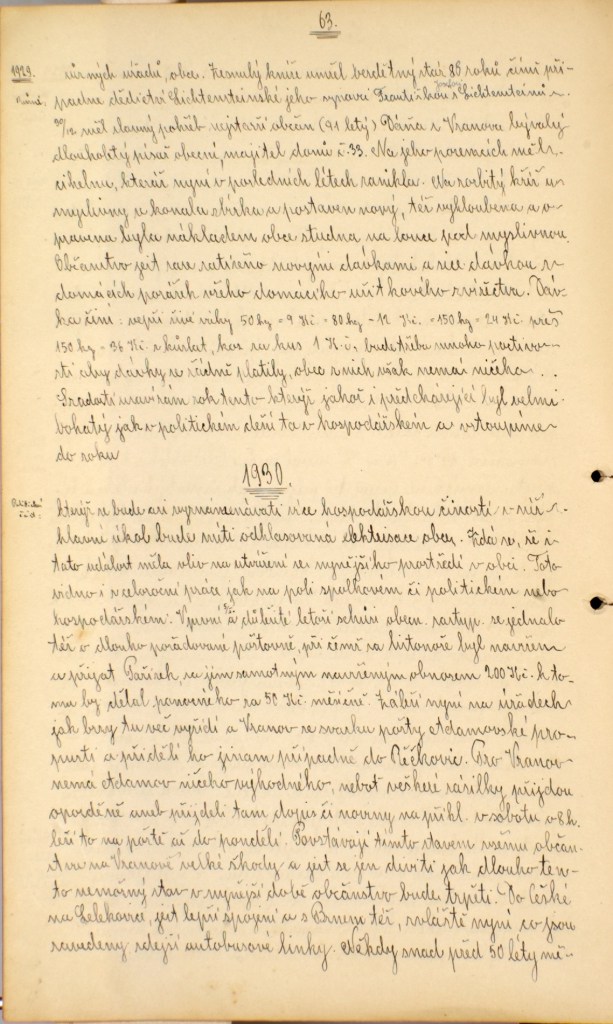 63.
1929.
různých úřadů, obce. Zesnulý kníže umřel bezdětný stár 86 roků čímž při-
Různé.
padne dědictví Lichtensteinské jeho synovci Františkovi z Lichtensteinů.
30/12 měl slavný pohřeb nejstarší občan (91 letý) Dáňa z Vranova bývalý
dlouholetý písař obecný, majitel domu č. 33. Na jeho pozemcích měl i
cihelnu, kteráž nyní v posledních létech zanikla. Na rozbitý kříž u
myslivny vykonala sbírka a postaven nový, též vyhloubena a o-
pravena byla nákladem obce studna na louce pod myslivnou.
Občanstvo jest zase zatíženo novými dávkami a sice dávkou z
domácích porážek všeho domácího užitkového zvířectva. Dáv-
ka činí: vepři živé váhy 50 kg = 9 Kč = 80 kg - 12 Kč. = 150 kg = 24 Kč přes
150 kg = 36 Kč z kůzlat, koz za kus 1 Kč, bude třeba mnoho poctivo-
sti aby dávky se řádně platily, obec z nich však nemá ničeho...
S radostí uzavírám rok tento kterýž jakož i předcházející byl velmi
bohatý jak v politickém dění tak v hospodářském a vstoupíme
do roku
1930.
kterýž se bude asi vyznamenávati více hospodářskou činností v níž
hlavní úkol bude míti odhlasovaná elektrisace obce. Zdá se, že i
tato událost měla vliv na utváření se nynějšího prostředí v obci. Toto
vidno i v celoroční práce jak na poli spolkovém či politickém nebo
hospodářském. V první a důležité letoší schůzi obecn. zastup. se jednalo
též o dlouho požadované poštovně, při čemž za listonoše byl navržen
a přijat Pařízek za jím samotným navrženým obnosem 200 Kč. k to-
mu by dělal ponocného za 50 Kč měsíčně. Záleží nyní na úřadech
jak brzy tu věc vyřídí a Vranov ze svazku pošty Adamovské pro-
pustí a přidělí ho jinam případně do Řečkovic. Pro Vranov
nemá Adamov ničeho výhodného, neboť veškeré zásilky přijdou
opožděně aneb přijdeli tam dopis či noviny na příkl. v sobotu o 8 h.
leží to na poště až do pondělí. Povstávají tímto stavem všemu občan-
stvu na Vranově velké škody a jest se jen diviti jak dlouho ten-
to nemožný stav v nynější době občanstvo bude trpěti. Do Češké
na Lelekovice, jest lepší spojení a s Brnem též, zvláště nyní co jsou
zavedeny zdejší autobusové linky. Někdy snad před 50 léty mě-